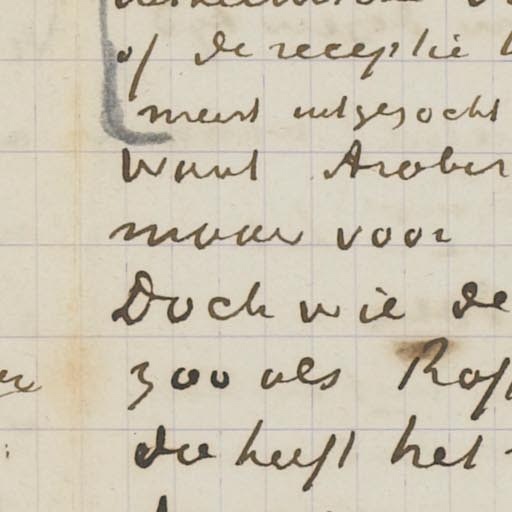 of de receptie
meest uitgezocht
Want Arabier
maar voor
Doch wie de
zoo als
die heeft het